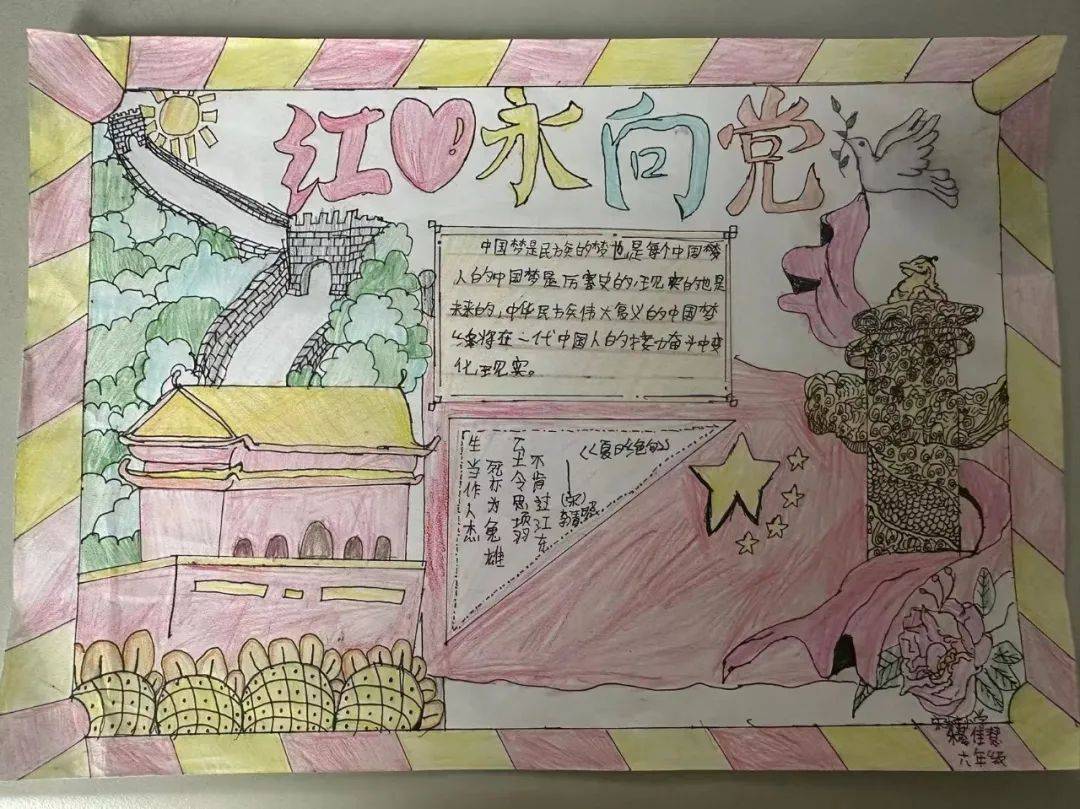 红永向党
中国梦是民族的梦也是每个中国梦
人的中国梦是历史的现实的也是
未来的,中华民族伟大意义的中国梦
将在一代中国人的接力奋斗中变
化现实。
《夏日绝句》
(宋)
李清照
生当作人杰
死亦为鬼雄
至今思项羽
不肯过江东
佳慧
六年级